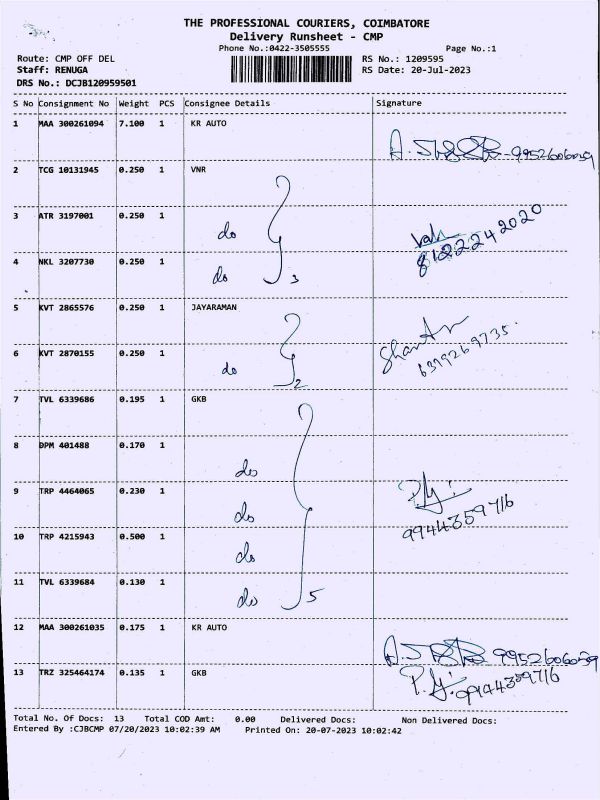 THE PROFESSIONAL COURIERS, COIMBATORE
Delivery Runsheet - CMP
Phone No.:0422-3505555 Page No.:1
Route: CMP OFF DEL RS No.: 1209595
Staff: RENUGA RS Date: 20-Jul-2023
DRS No.: DCJB120959501
S No Consignment No Weight PCS Consignee Details Signature
1 MAA 300261094 7.100 1 KR AUTO
9952606059
2 TCG 10131945 0.250 1 VNR
3 ATR 3197001 0.250 1 do
8122242020
4 NKL 3207730 0.250 1 do 3
5 KVT 2865576 0.250 1 JAYARAMAN
6379269735
6 KVT 2870155 0.250 1 do 2
7 TVL 6339686 0.195 1 GKB
8 DPM 401488 0.170 1 do
9 TRP 4464065 0.230 1 do
9944359716
10 TRP 4215943 0.500 1 do
11 TVL 6339684 0.130 1 do 5
12 MAA 300261035 0.175 1 KR AUTO
9952606059
13 TRZ 325464174 0.135 1 GKB
9944359716
Total No. Of Docs: 13 Total COD Amt: 0.00 Delivered Docs: Non Delivered Docs:
Entered By :CJBCMP 07/20/2023 10:02:39 AM Printed On: 20-07-2023 10:02:42